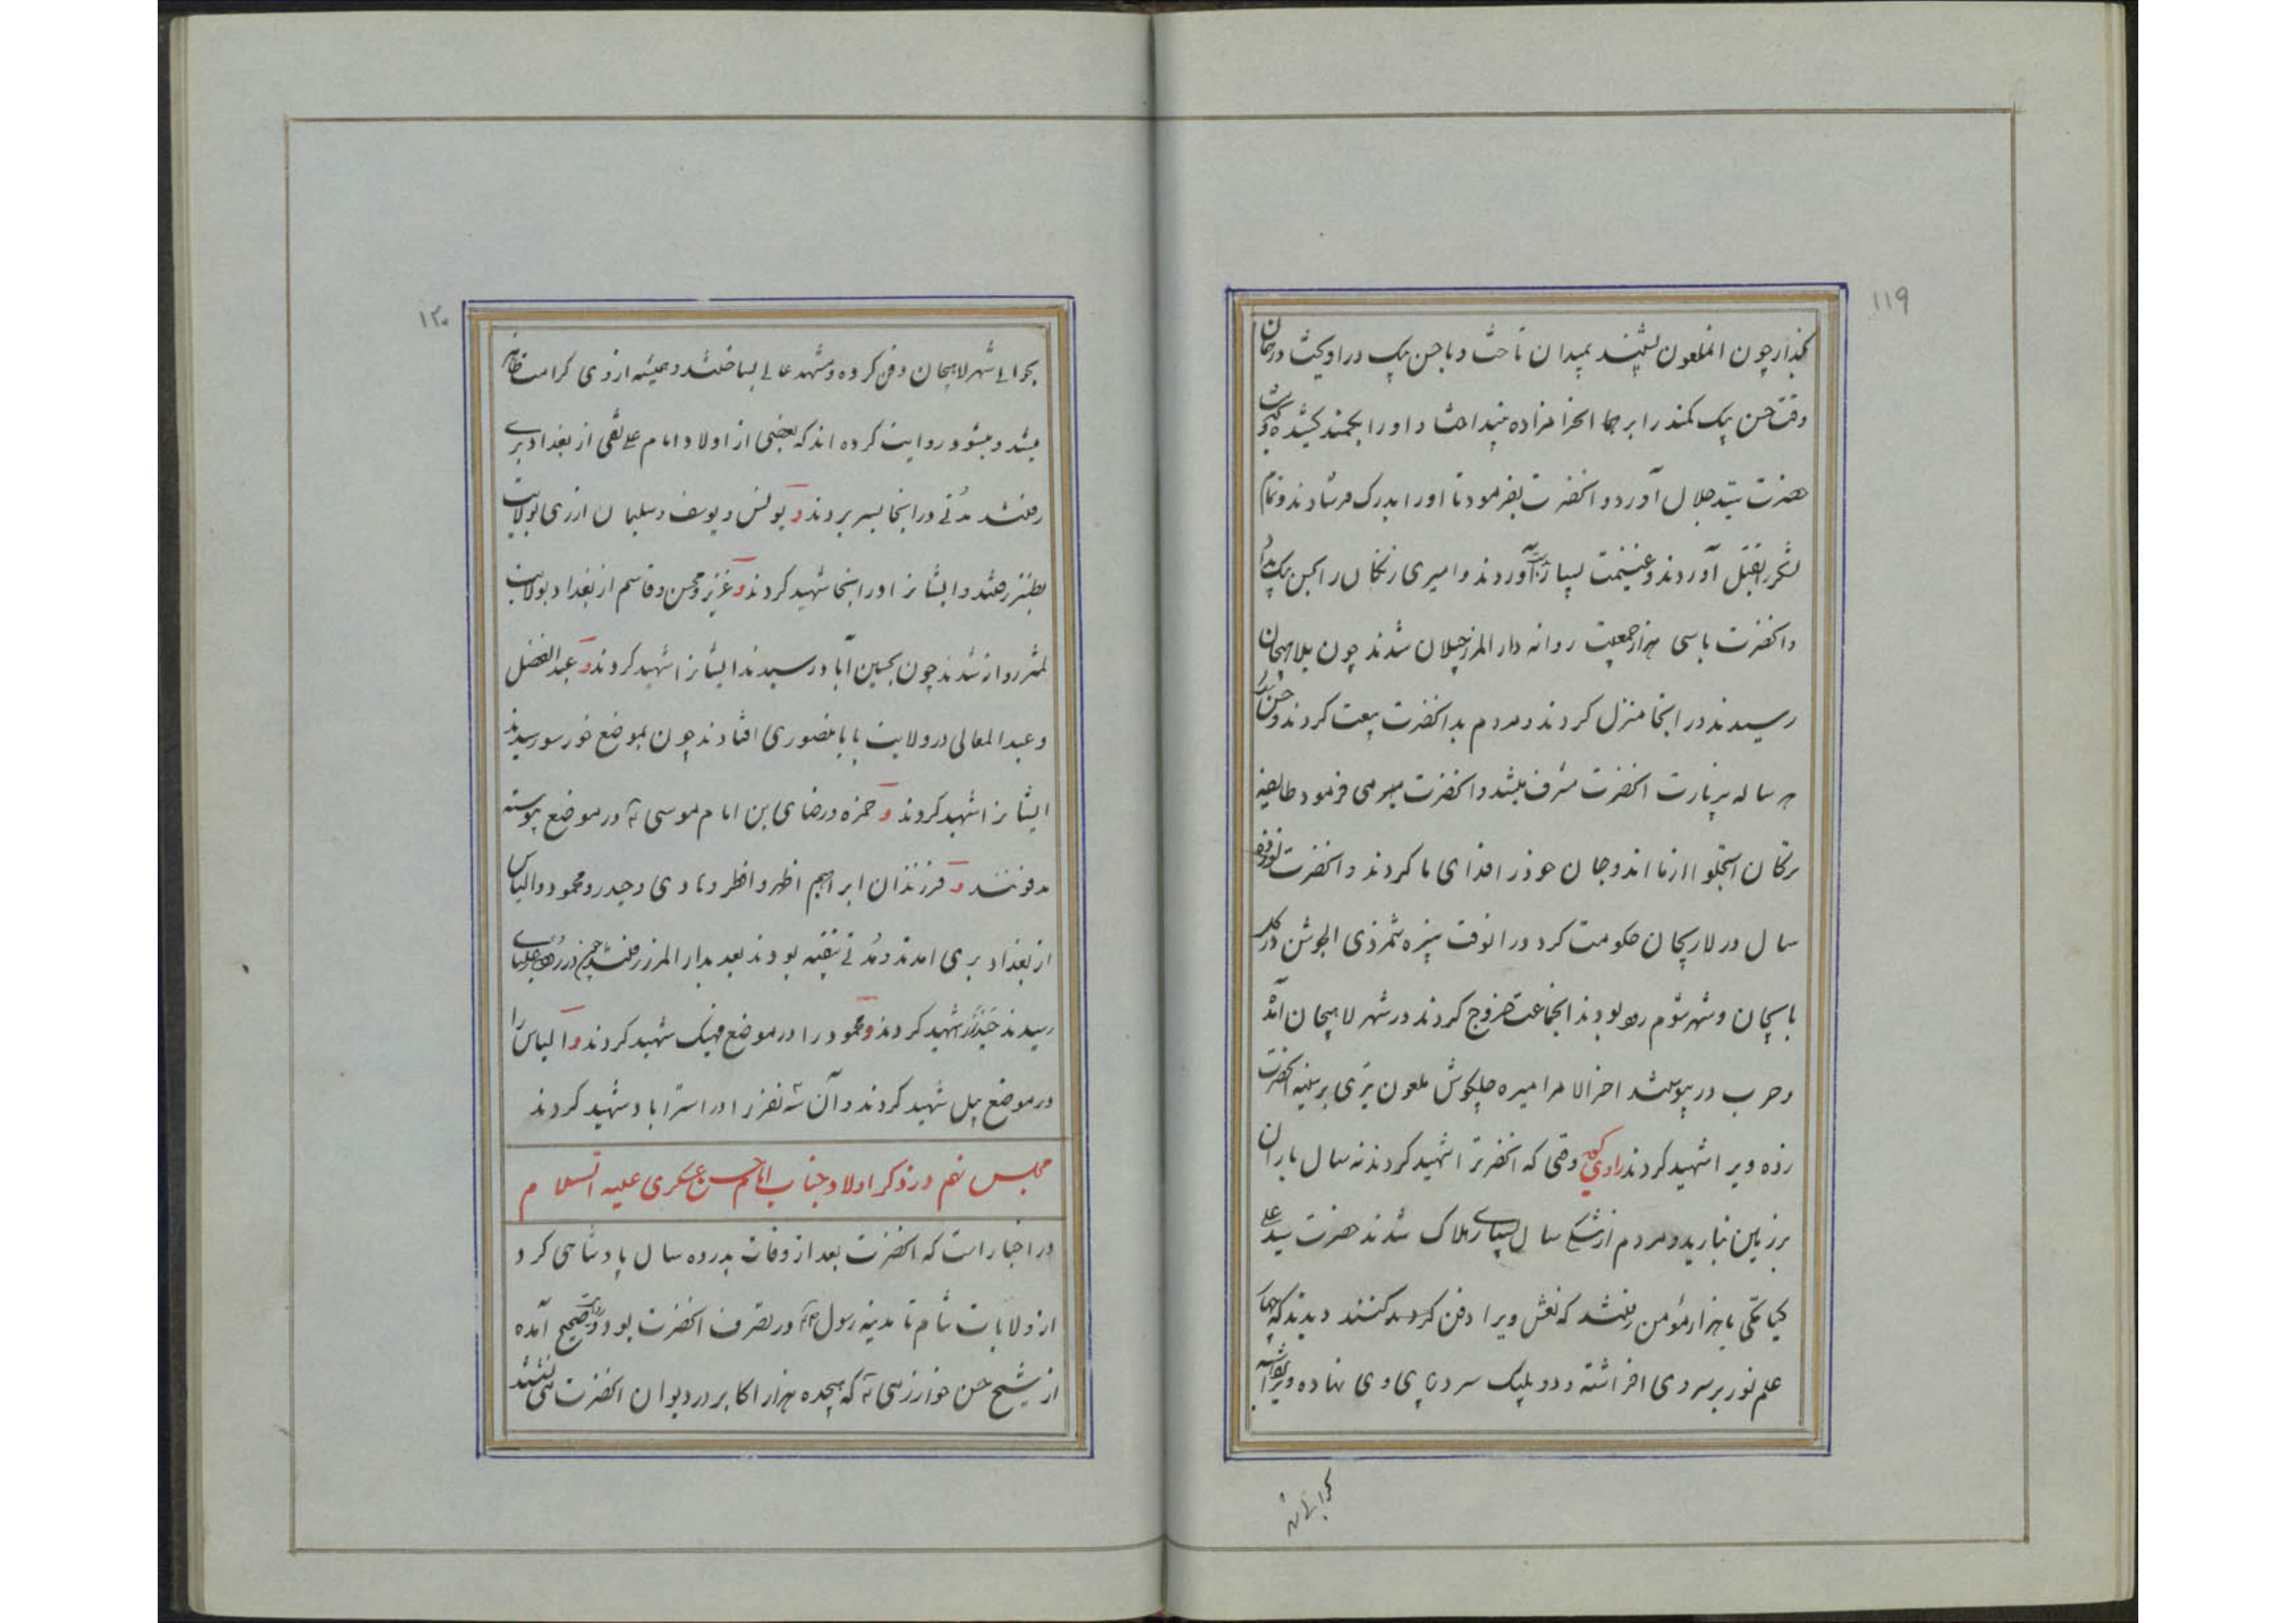 ۱۱۹
بگذار چون آنملعون بشنید بمیدان تاخت و با حسن بیک در آویخت در همان
وقت حسن بیک کمند را بر همان حرامزاده بینداخت و او را بکمند کشیده
حضرت سید جلال آورد و آنحضرت بفرمود تا او را بدرک فرستادند و تمام
لشکر را بقتل آوردند و غنیمت بسیار آوردند و امیری زنکان را بحسن بیک
و آنحضرت با سی هزار جمعیت روانه دار المرز جیلان شدند چون بلاهیجان
رسیدند در آنجا منزل کردند و مردم بدانحضرت بیعت کردند و حسن
هر ساله بزیارت آنحضرت مشرف میشد و آنحضرت میفرمود طایفه
ترکان استجلو از ما اند و جان خود را فدای ما کردند و آنحضرت
سال در لاریجان حکومت کرد در آنوقت نبیره شمر ذی الجوشن در
و شهر شوم رود بودند آنجماعت خروج کردند در شهر لاهیجان
و حرب در پیوستند اخر الامر امیره چلپکوش ملعون تیری بر سینه آنحضرت
زده ویرا شهید کردند راوی گوید وقتی که آنحضرترا شهید کردند نه سال باران
بر زمین نبارید و مردم از تنگی سال بسیاری هلاک شدند حضرت سید علی
کیا با هزار مؤمن رفتند که نعش ویرا دفن کنند دیدند که
علم نور بر سر وی افراشته و دو پلنگ سر در پای وی نهاده
۱۲۰
بحوالی شهر لاهیجان دفن کرده و مشهد عالی بساختند و همیشه از وی کرامت ظاهر
میشد و میشود و روایت کرده اند که بعضی از اولاد امام علی نقی از بغداد بری
رفتند مدتی در آنجا بسر بردند و یونس و یوسف و سلیمان از ری بولایت
نطنز رفتند و ایشانرا در آنجا شهید کردند و عزیز و محسن و قاسم از بغداد بولایت
روان شدند چون بحسین آباد رسیدند ایشانرا شهید کردند و عبد الفضل
و عبد المعالی در ولایت بابا منصوری افتادند چون بموضع خورسو رسیدند
ایشانرا شهید کردند و حمزه و رضای بن امام موسی ع در موضع
مدفونند و فرزندان ابراهیم اظهر و اطهر و هادی و حیدر و محمود و الیاس
از بغداد بری امدند و مدتی بتقیه بودند بعد بدار المرز رفتند چون در
رسیدند حیدر را شهید کردند و محمود را در موضع فهنک شهید کردند و الیاس را
در موضع پیل شهید کردند و آن سه نفر را در استراباد شهید کردند
مجلس نهم در ذکر اولاد جناب امام حسن عسکری علیه السلام
در اخبار است که آنحضرت بعد از وفات پدر ده سال پادشاهی کرد
از ولایات شام تا مدینه رسول در تصرف آنحضرت بود و روایت صحیح آمده
از شیخ حسن خوارزمی که هیجده هزار اکابر در دیوان آنحضرت می نشستند